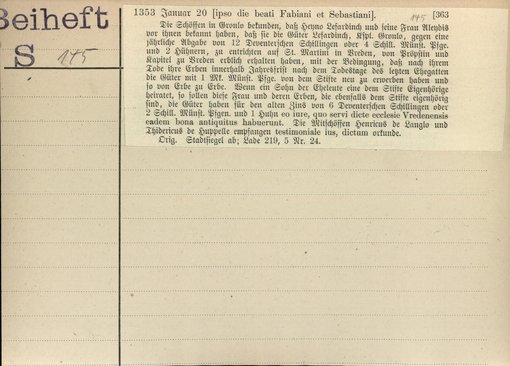 Beiheft
S 145
1353 Januar 20 [ipso die beati Fabiani et Sebastiani]. 145 [363
Die Schöffen in Gronlo bekunden, daß Heyno Lefardinch und seine Frau Aleydis
vor ihnen bekannt haben, daß sie die Güter Lefardinch, Kspl. Gronlo, gegen eine
jährliche Abgabe von 12 Deventerschen Schillingen oder 4 Schill. Münst. Pfge.
und 2 Hühnern, zu entrichten auf St. Martini in Vreden, von Pröpstin und
Kapitel zu Vreden erblich erhalten haben, mit der Bedingung, daß nach ihrem
Tode ihre Erben innerhalb Jahresfrist nach dem Todestage des letzten Ehegatten
die Güter mit 1 Mk. Münst. Pfge. von dem Stifte neu zu erwerben haben und
so von Erbe zu Erbe. Wenn ein Sohn der Eheleute eine dem Stifte Eigenhörige
heiratet, so sollen diese Frau und deren Erben, die ebenfalls dem Stifte eigenhörig
sind, die Güter haben für den alten Zins von 6 Deventerschen Schillingen oder
2 Schill. Münst. Pfgen. und 1 Huhn eo iure, quo servi dicte ecclesie Vredenensis
eadem bona antiquitus habuerunt. Die Mitschöffen Henricus de Langlo und
Thidericus de Huppelle empfangen testimoniale ius, dictum orkunde.
Orig. Stadtsiegel ab; Lade 219, 5 Nr. 24.